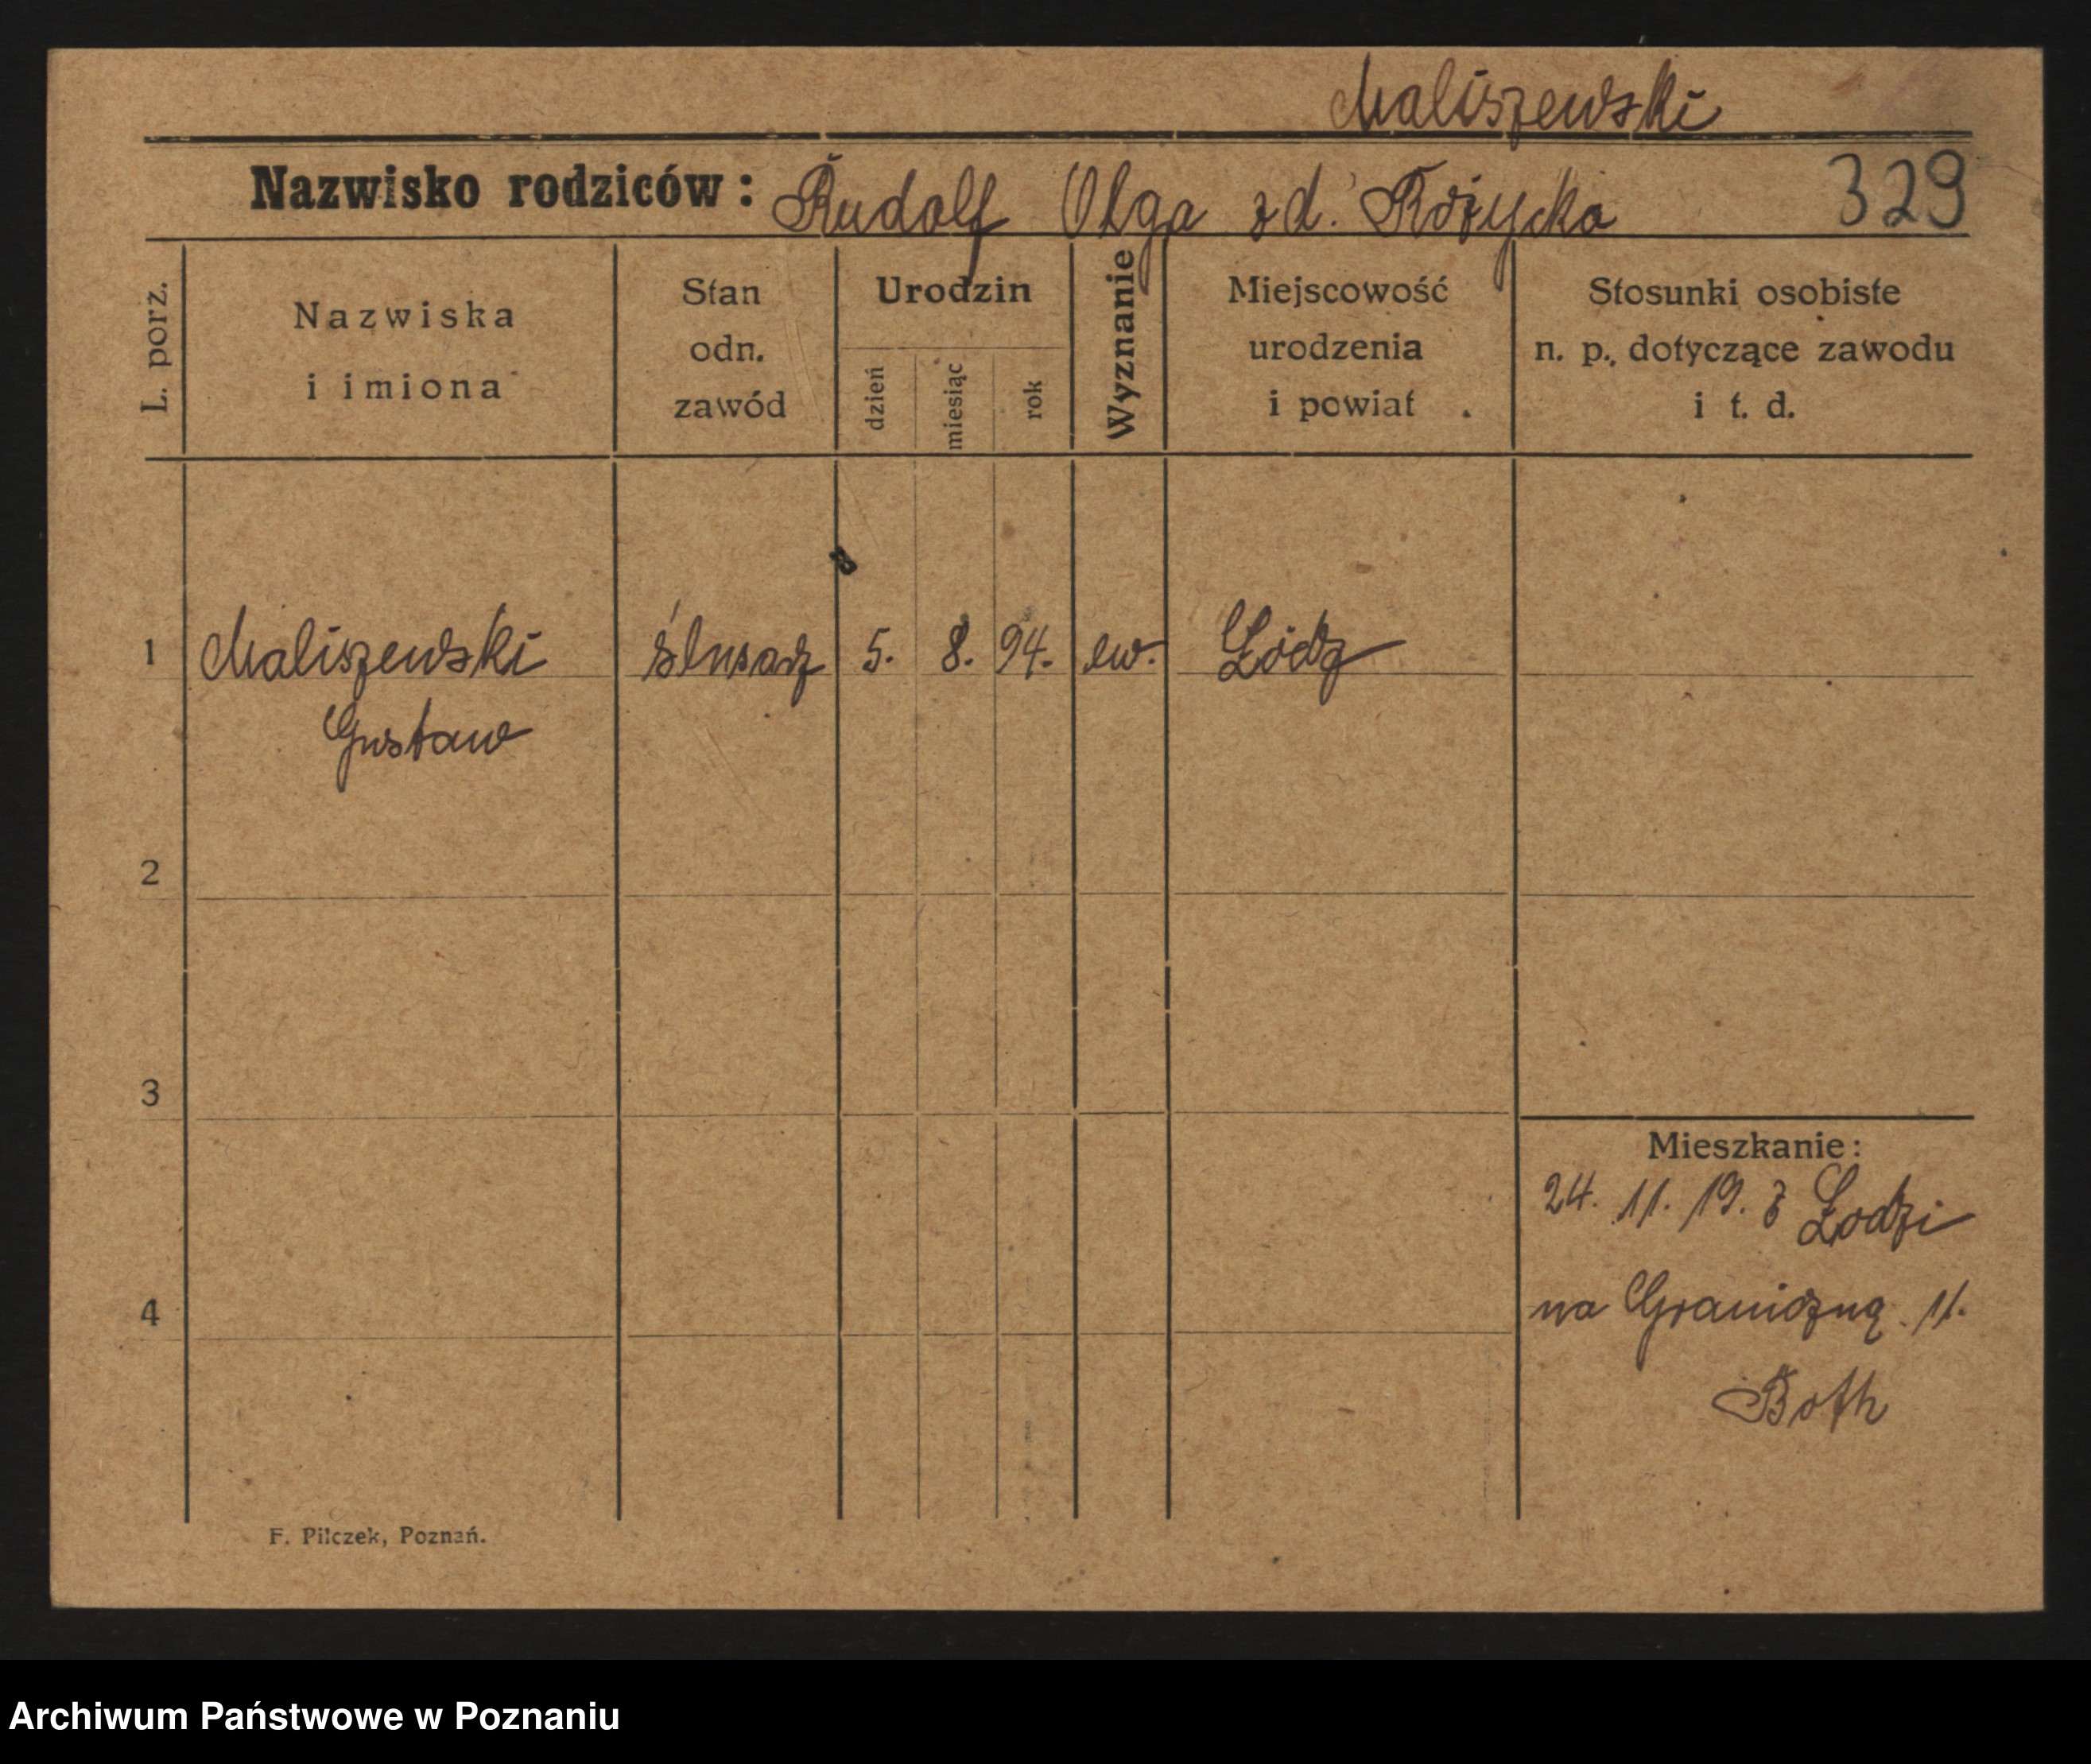 Maliszewski
Nazwisko rodziców: Rudolf Olga z d. Różycka 329
L. porz.
Nazwiska
i imiona
Stan
odn.
zawód
Urodzin
dzień
miesiąc
rok
Wyznanie
Miejscowość
urodzenia
i powiat
Stosunki osobiste
n. p. dotyczące zawodu
i t. d.
1 Maliszewski ślusarz 5. 8. 94. ew. Łódź
Gustaw
2
3
Mieszkanie:
24. 11. 19. z Łodzi
4 na Graniczną 11.
Both
F. Pilczek, Poznań.
Archiwum Państwowe w Poznaniu